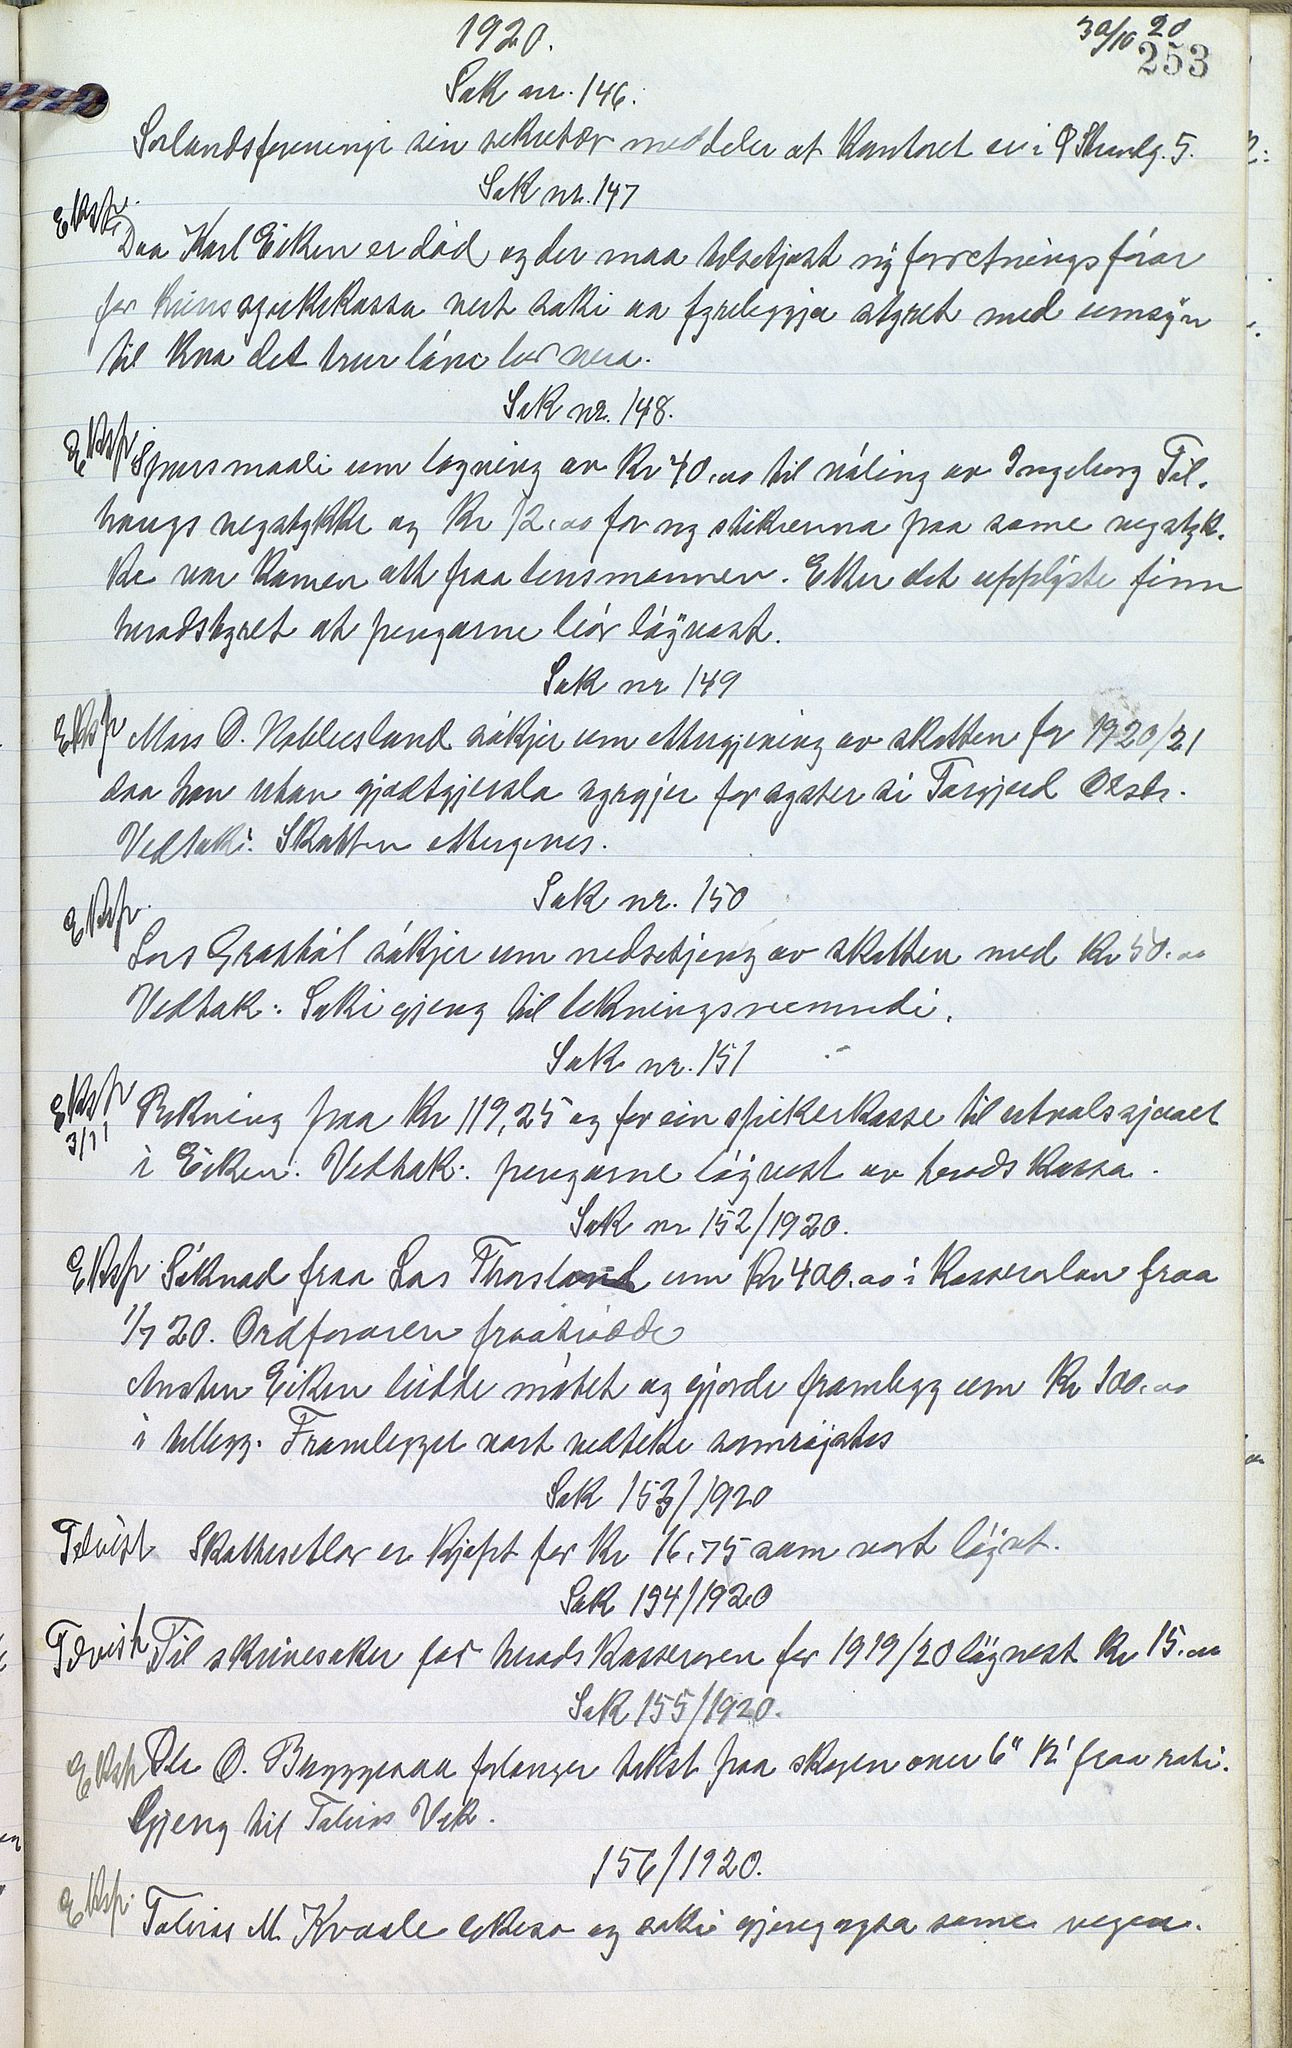 1920.
30/10 20
253
Sak nr. 146.
Sørlandsforeningi sin sekretær meddeler at kontoret er i Ø Strandg. 5.
Sak nr. 147
Eksp.
Daa Karl Eiken er død, og der maa tilsetjast ny forretningsførar
for krinssjukekassa vert saki aa fyreleggja styret med umsyn
til kva det trur løni bør vera.
Sak nr. 148.
Eksp. Spursmaali um løgning av Kr 40.00 til måling av Ingeborg Föl-
haugs vegstykke og Kr 12.00 for ny stikrenna paa same vegstyk-
ke var komen att fraa lensmannen. Etter det upplyste finn
heradstyret at pengarne bör löyvast.
Sak nr 149
Eksp Mons O. Noblesland søkjer um ettergjeving av skatten for 1920/21
daa han utan godtgjersla syrgjer for syster si Torgjerd Olsdr.
Vedtak: Skatten ettergives.
Eksp.
Sak nr. 150
Lars Grostöl søkjer um nedsetjing av skatten med Kr 50.00
Vedtak: Saki gjeng til likningsnemndi.
Sak nr. 151
Eksp 3/11 Rekning paa Kr 119,25 og for ein spikerkasse til utvalssjaaet
i Eiken. Vedtak: pengarne löyvest av heradskassa.
Sak nr 152/1920.
Eksp Søknad fraa Lars Thorsland um Kr 400.00 i kasserarløn fraa
1/7 20. Ordføraren fraatrødde
Ansten Eiken leidde møtet og gjorde framlegg um Kr 100.00
i tillegg. Framlegget vart vedteke samrøystes
Sak 153/1920
Tilvist Skattesetlar er kjøpt for Kr 16,75 som vart löyvt.
Sak 154/1920
Tilvist Til skrivesaker for heradskasseraren for 1919/20 löyvest Kr 15.00
Sak 155/1920.
Eksp Ole O. Bryggesaa forlanger takst paa skogen over 6" n' fraa roti.
Gjeng til Tobias Vik.
156/1920.
Eksp. Tobias M. Kvaale likeso og saki gjeng ogsa same vegen.